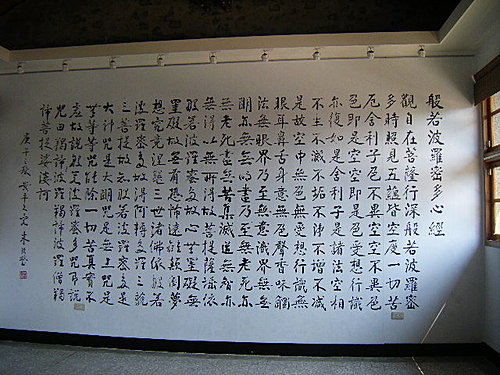 般若波羅密多心經
觀自在菩薩行深般若波羅密
多時照見五蘊皆空度一切苦
厄舍利子色不異空空不異色
色即是空空即是色受想行識
亦復如是舍利子是諸法空相
不生不滅不垢不淨不增不減
是故空中無色無受想行識無
眼耳鼻舌身意無色聲香味觸
法無眼界乃至無意識界無無
明亦無無明盡乃至無老死亦
無老死盡無苦集滅道無智亦
無得以無所得故菩提薩埵依
般若波羅密多故心無罣礙無
罣礙故無有恐怖遠離顛倒夢
想究竟涅槃三世諸佛依般若
波羅密多故得阿耨多羅三藐
三菩提故知般若波羅密多是
大神咒是大明咒是無上咒是
無等等咒能除一切苦真實不
虛故說般若波羅密多咒即說
咒曰羯諦波羅羯諦波羅僧羯
諦菩提薩婆訶